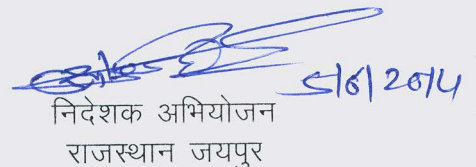 5/6/2014
निदेशक अभियोजन
राजस्थान जयपुर